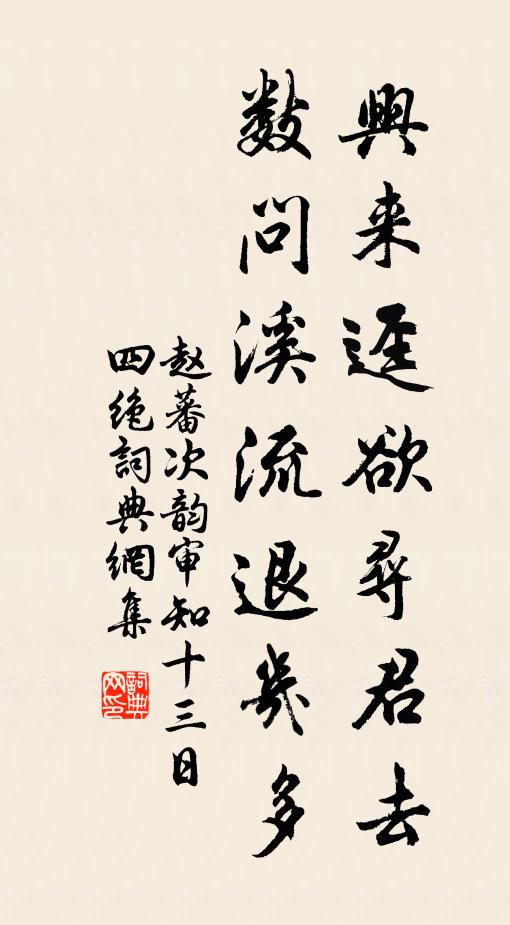 興来逕欲尋君去
數問溪流退幾多
赵蕃次韵审知十三日
四绝詞典網集
詞典网印